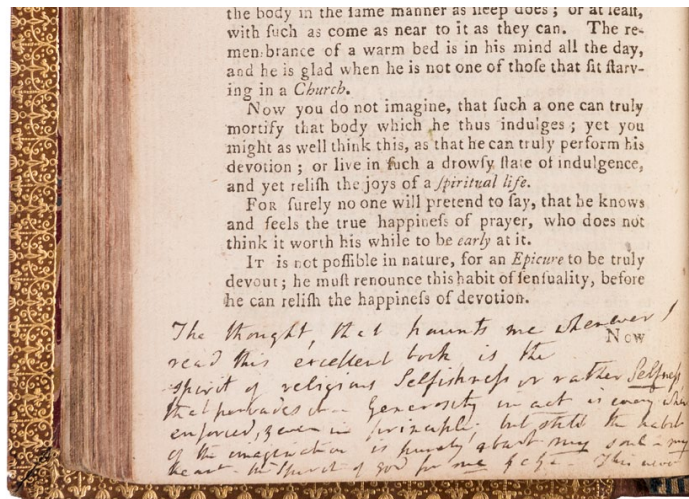 the body in the ſame manner as ſleep does ; or at leaſt,
with ſuch as come as near to it as they can. The re-
membrance of a warm bed is in his mind all the day,
and he is glad when he is not one of thoſe that ſit ſtarv-
ing in a Church.
Now you do not imagine, that ſuch a one can truly
mortify that body which he thus indulges ; yet you
might as well think this, as that he can truly perform his
devotion ; or live in ſuch a drowſy ſtate of indulgence,
and yet reliſh the joys of a ſpiritual life.
FOR ſurely no one will pretend to ſay, that he knows
and feels the true happineſs of prayer, who does not
think it worth his while to be early at it.
IT is not poſſible in nature, for an Epicure to be truly
devout ; he muſt renounce this habit of ſenſuality, before
he can reliſh the happineſs of devotion.
Now
The thought, that haunts me whenever I
read this excellent book is the
spirit of religious Selfishneſs or rather Selfneſs
that pervades it - Generosity in act is every where
enforced, & even in principle; but still the habit
of the imagination is purely about my soul - my
heart - the Spirit of God for me &c &c - This never